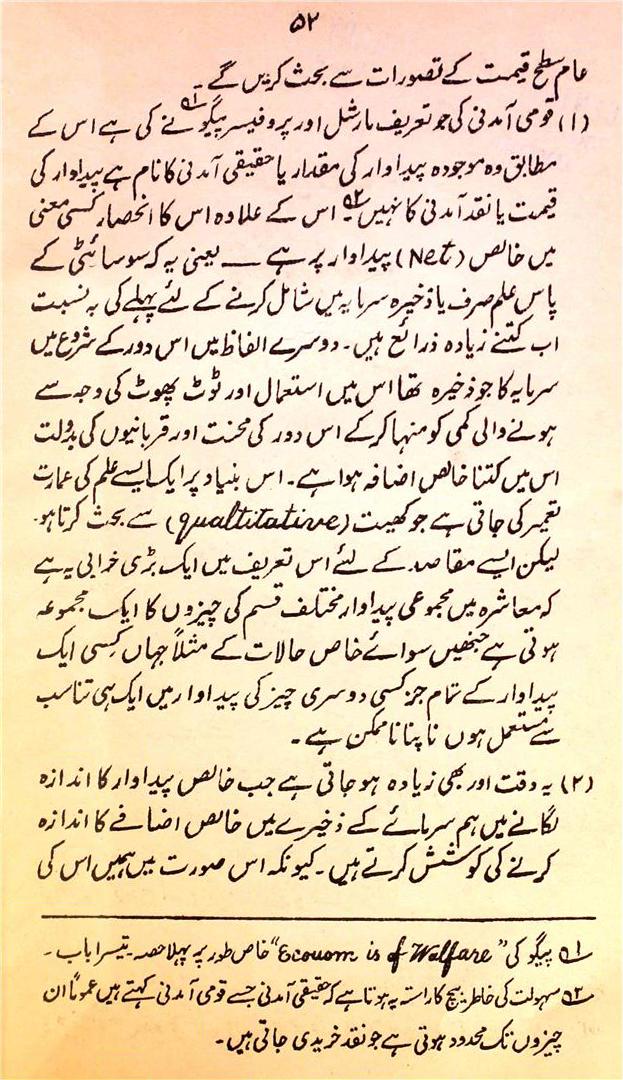 ۵۲
عام سطح قیمت کے تصورات سے بحث کریں گے۔
(۱) قومی آمدنی کی جو تعریف مارشل اور پروفیسر پیگو ؎۱ نے کی ہے اس کے
مطابق وہ موجودہ پیداوار کی مقدار یا حقیقی آمدنی کا نام ہے پیداوار کی
قیمت یا نقد آمدنی کا نہیں ؎۲ اس کے علاوہ اس کا انحصار کسی معنی
میں خالص (Net) پیداوار پر ہے — یعنی یہ کہ سوسائٹی کے
پاس علم صرف یا ذخیرہ سرمایہ میں شامل کرنے کے لئے پہلے کی بہ نسبت
اب کتنے زیادہ ذرائع ہیں۔ دوسرے الفاظ میں اس دور کے شروع میں
سرمایہ کا جو ذخیرہ تھا اس میں استعمال اور ٹوٹ پھوٹ کی وجہ سے
ہونے والی کمی کو منہا کرکے اس دور کی محنت اور قربانیوں کی بدولت
اس میں کتنا خالص اضافہ ہوا ہے۔ اس بنیاد پر ایک ایسے علم کی عمارت
تعمیر کی جاتی ہے جو کمیت (qualtitative) سے بحث کرتا ہو۔
لیکن ایسے مقاصد کے لئے اس تعریف میں ایک بڑی خرابی یہ ہے
کہ معاشرہ میں مجموعی پیداوار مختلف قسم کی چیزوں کا ایک مجموعہ
ہوتی ہے جنھیں سوائے خاص حالات کے مثلاً جہاں کسی ایک
پیداوار کے تمام جز کسی دوسری چیز کی پیداوار میں ایک ہی تناسب
سے مستعمل ہوں ناپنا ناممکن ہے۔
(۲) یہ دقت اور بھی زیادہ ہو جاتی ہے جب خالص پیداوار کا اندازہ
لگانے میں ہم سرمائے کے ذخیرے میں خالص اضافے کا اندازہ
کرنے کی کوشش کرتے ہیں۔ کیونکہ اس صورت میں ہمیں اس کی
؎۱ پیگو کی "Ecouom is of Walfare" خاص طور پر پہلا حصہ۔ تیسرا باب۔
؎۲ سہولت کی خاطر بیچ کا راستہ یہ ہوتا ہے کہ حقیقی آمدنی جسے قومی آمدنی کہتے ہیں عموماً ان
چیزوں تک محدود ہوتی ہے جو نقد خریدی جاتی ہیں۔